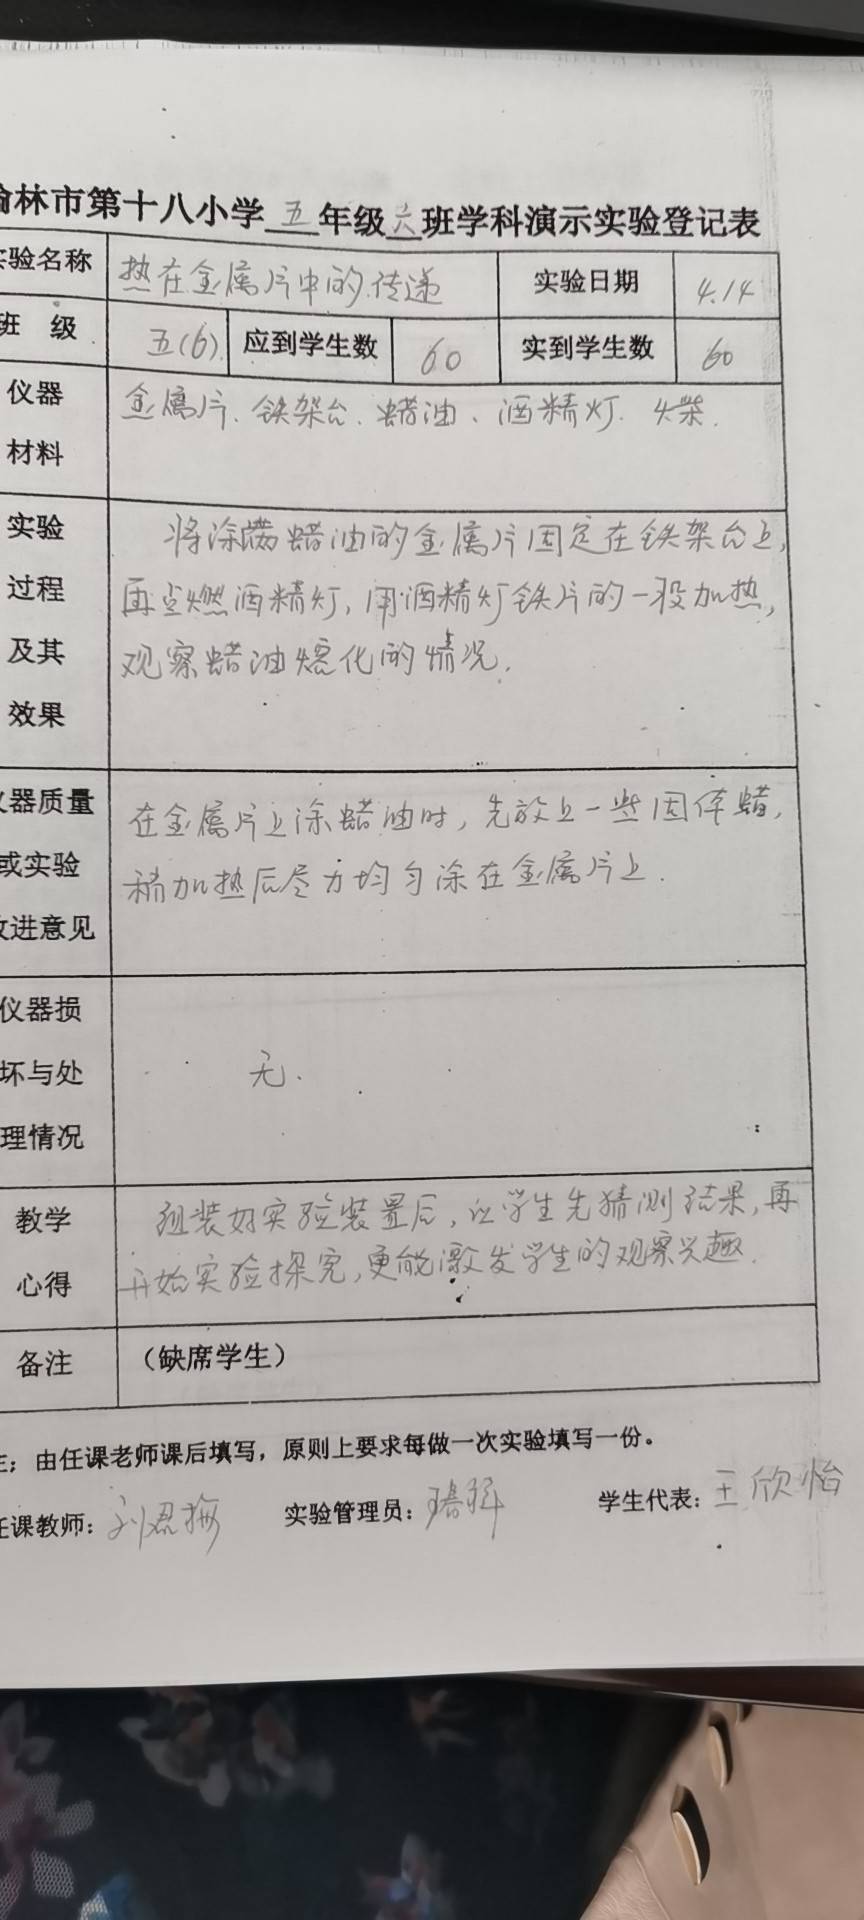 林市第十八小学五年级六班学科演示实验登记表
验名称 热在金属片中的传递 实验日期 4.14
班 级 五(6) 应到学生数 60 实到学生数 60
仪器 金属片、铁架台、蜡油、酒精灯、火柴.
材料
实验 将涂满蜡油的金属片固定在铁架台上,
过程 再点燃酒精灯,用酒精灯铁片的一段加热,
及其 观察蜡油熔化的情况.
效果
器质量 在金属片上涂蜡油时,先放上一些固体蜡,
或实验 稍加热后尽力均匀涂在金属片上.
改进意见
仪器损
坏与处 无.
理情况
教学 组装好实验装置后,让学生先猜测结果,再
心得 开始实验探究,更能激发学生的观察兴趣.
备注 (缺席学生)
由任课老师课后填写，原则上要求每做一次实验填写一份。
任课教师: 刘 实验管理员: 学生代表: 王欣怡